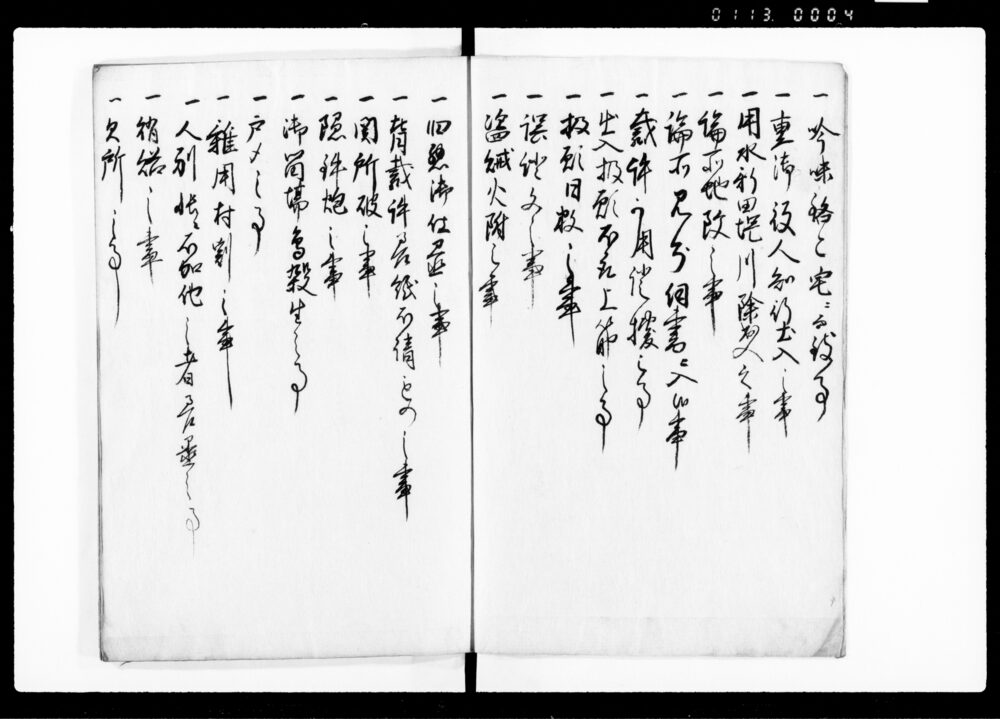 0113 0004
一 吟味稼ニ宅ニ而
一 重御役人知行出入之事
一 用水新田堤川除出入之事
一 論所地改之事
一 論所見分伺書ニ入候事
一 裁許可用証拠之事
一 出入扱願不取上筋之事
一 扱願日数之事
一 誤証文之事
一 盗賊火附之事
一 旧悪御仕置之事
一 背裁許不請もの之事
一 関所破之事
一 隠鉄炮之事
一 御留場鳥殺生之事
一 戸〆之事
一 雑用村割之事
一 人別帳不加他之者差置之事
一 之事
一 欠所之事